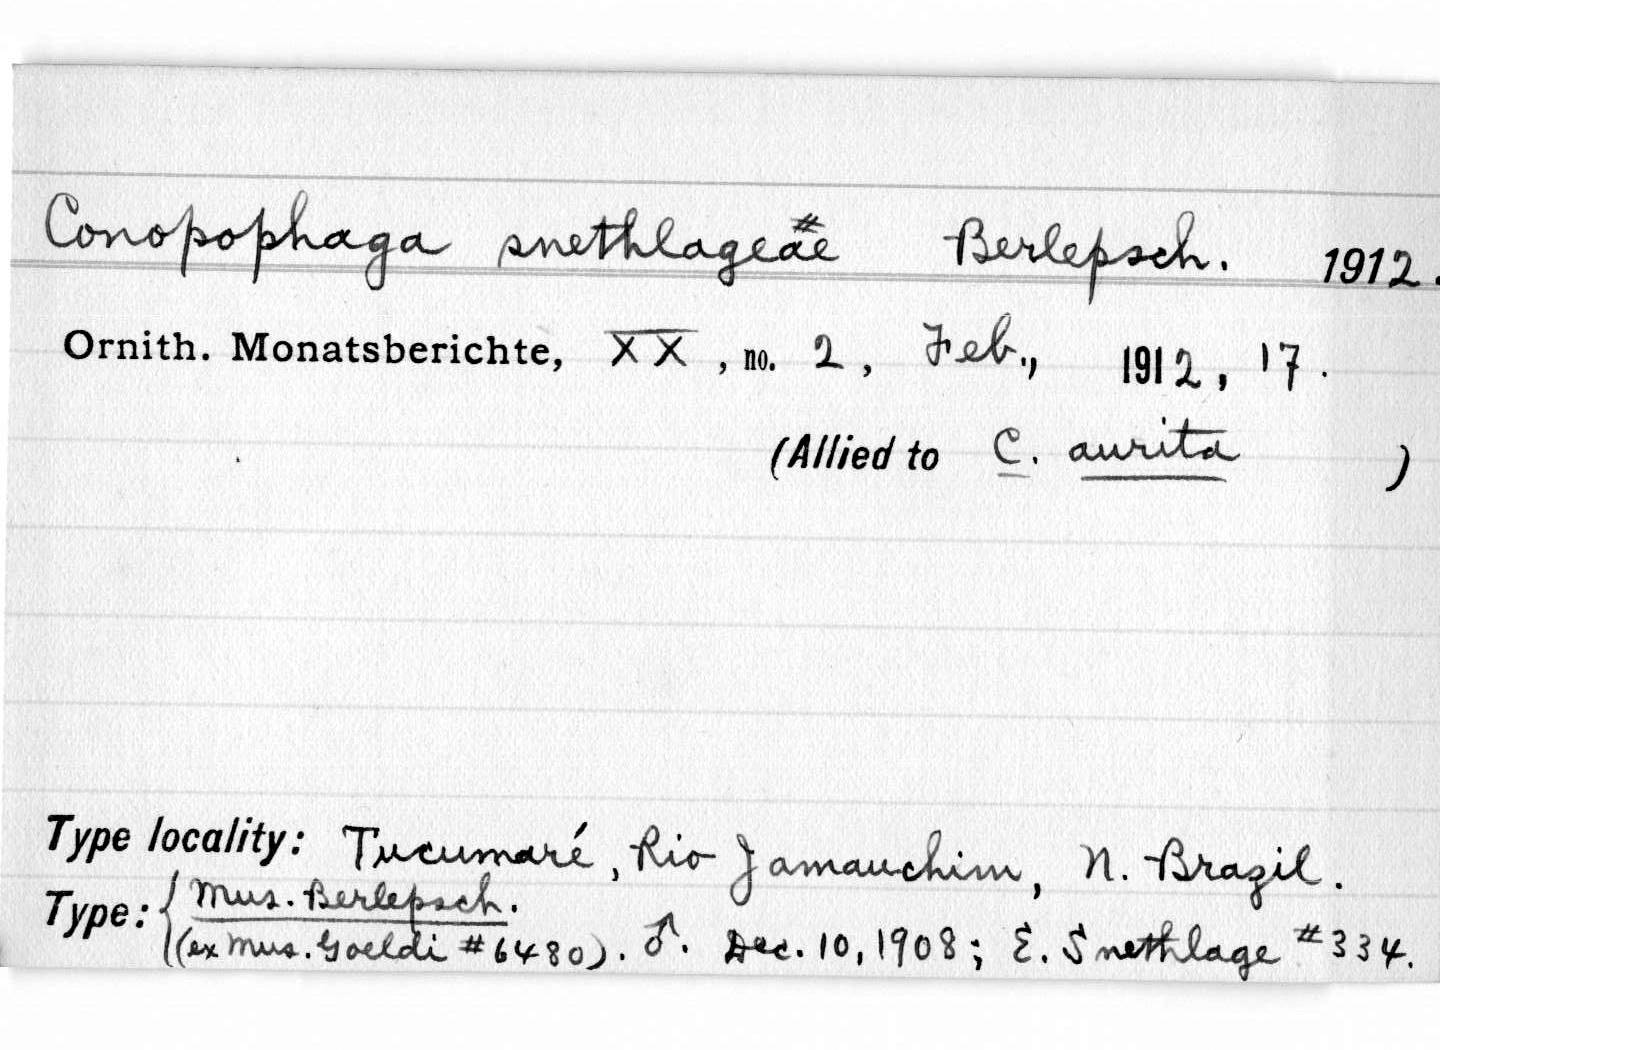 Conopophaga snethlageae # Berlepsch. 1912.
Ornith. Monatsberichte, XX, no. 2, Feb., 1912, 17.
(Allied to C. aurita )
Type locality: Tucumaré, Rio Jamauchim, N. Brazil.
Type: { Mus. Berlepsch.
(ex Mus. Goeldi #6480). ♂. Dec. 10, 1908; E. Snethlage #334.